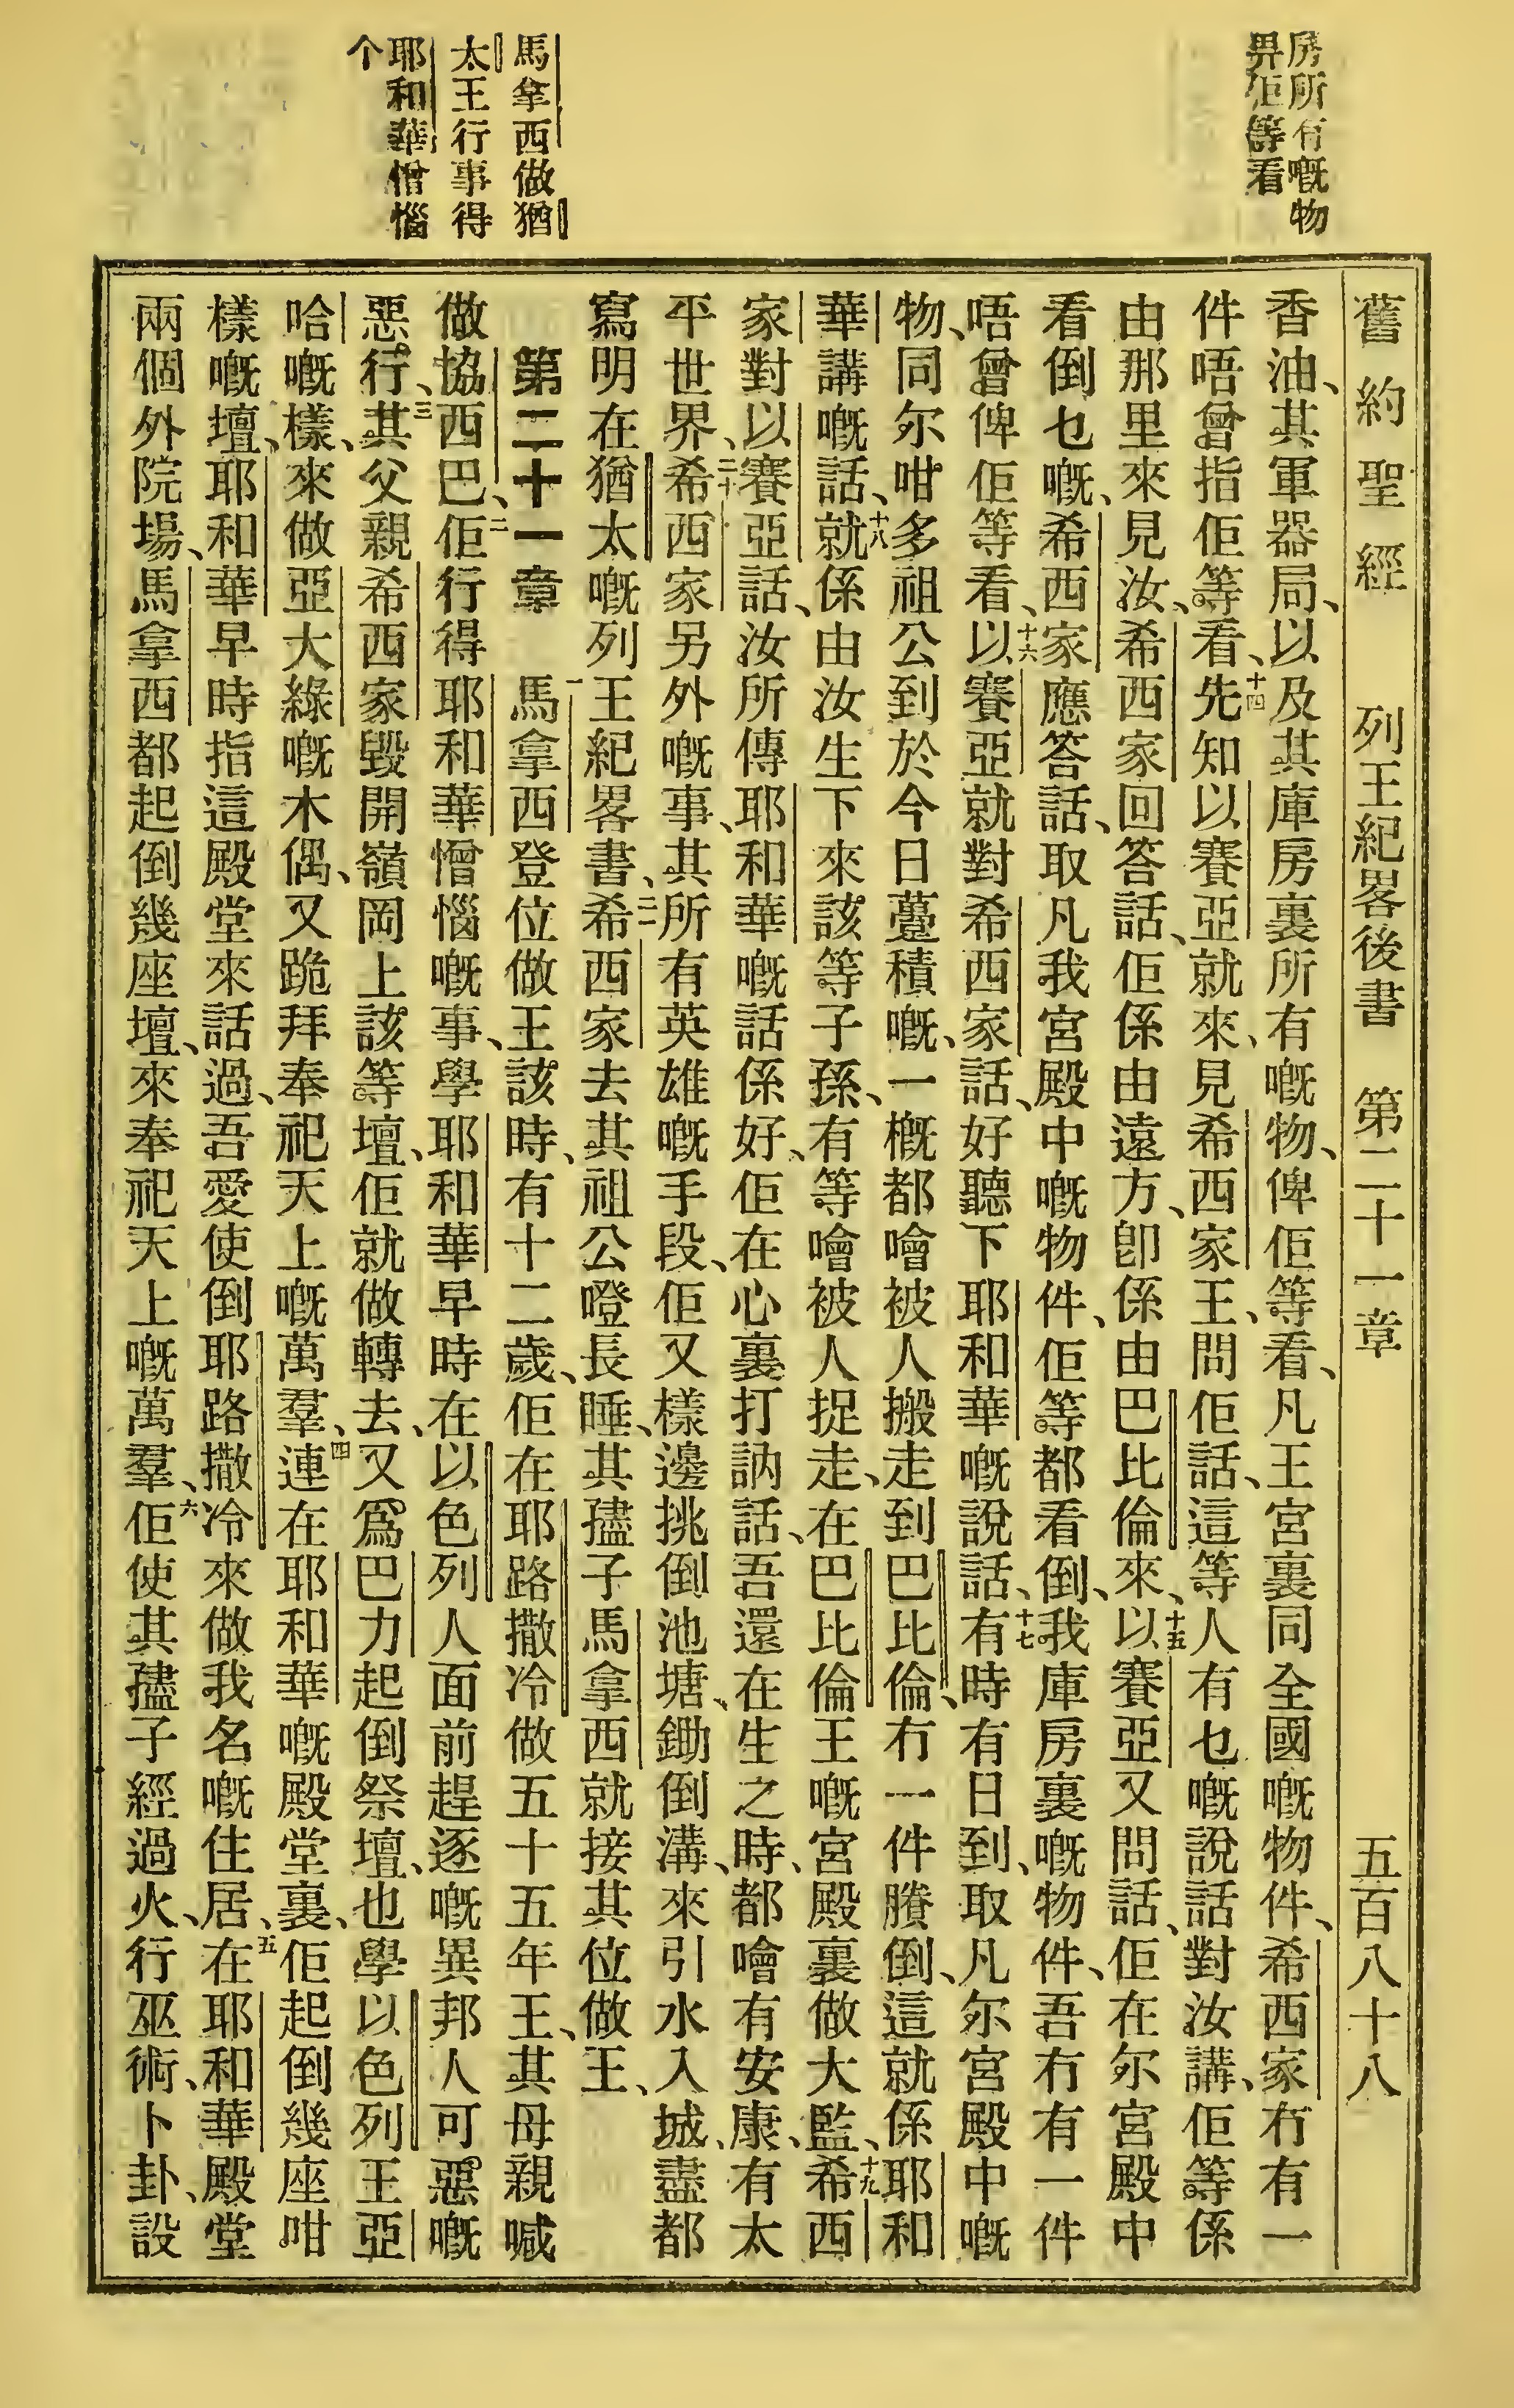 房所有嘅物
畀佢等看
馬拿西做猶
太王行事得
耶和華憎惱
个
舊約聖經 列王紀畧後書 第二十一章 五百八十八
香油、其軍器局、以及其庫房裏所有嘅物、俾佢等看、凡王宮裏同全國嘅物件、希西家冇有一
件唔曾指佢等看、十四先知以賽亞就來、見希西家王、問佢話、這等人有乜嘅說話對汝講、佢等係
由那里來見汝、希西家回答話、佢係由遠方、卽係由巴比倫來、十五以賽亞又問話、佢在尔宮殿中
看倒乜嘅、希西家應答話、取凡我宮殿中嘅物件、佢等都看倒、我庫房裏嘅物件、吾冇有一件
唔曾俾佢等看、十六以賽亞就對希西家話、好聽下耶和華嘅說話、十七有時有日到、取凡尔宮殿中嘅
物、同尔咁多祖公到於今日藞積嘅、一概都噲被人搬走到巴比倫、冇一件賸倒、這就係耶和
華講嘅話、十八就係由汝生下來該等子孫、有等噲被人捉走、在巴比倫王嘅宮殿裏做大監、十九希西
家對以賽亞話、汝所傳耶和華嘅話係好、佢在心裏打訥話、吾還在生之時、都噲有安康、有太
平世界、二十希西家另外嘅事、其所有英雄嘅手段、佢又樣邊挑倒池塘、鋤倒溝、來引水入城、盡都
寫明在猶太嘅列王紀畧書、二一希西家去其祖公嶝長睡、其𡥧子馬拿西就接其位做王、
第二十一章 一馬拿西登位做王該時、有十二歲、佢在耶路撒冷做五十五年王、其母親喊
做協西巴、二佢行得耶和華憎惱嘅事、學耶和華早時在以色列人面前趕逐嘅異邦人可惡嘅
惡行、三其父親希西家毀開嶺岡上該等壇、佢就做轉去、又爲巴力起倒祭壇、也學以色列王亞
哈嘅樣、來做亞大綠嘅木偶、又跪拜奉祀天上嘅萬羣、四連在耶和華嘅殿堂裏、佢起倒幾座咁
樣嘅壇、耶和華早時指這殿堂來話過、吾愛使倒耶路撒冷來做我名嘅住居、五在耶和華殿堂
兩個外院場、馬拿西都起倒幾座壇、來奉祀天上嘅萬羣、六佢使其𡥧子經過火、行巫術、卜卦、設